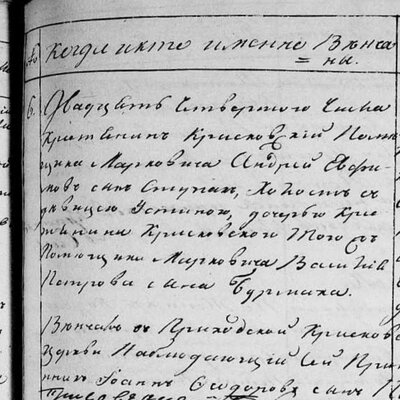 когда и кто именно Вѣнча
ны.
6. Двадцать Четвертого Числа
Крестьянинъ Крисковскій Помѣ
щика Марковича Андрей Ефи
мовъ сынъ Ступак, Холостъ съ
дѣвицею Устиною, дочерью Кре
стьянина Крисковского Того жъ
Помѣщика Марковича Василія
Петрова сына Бурлака.
Вѣнчалъ въ Приходской Крисков
Церкви Наблюдающій Сей При
Іоаннъ Ѳеодоровъ сынъ